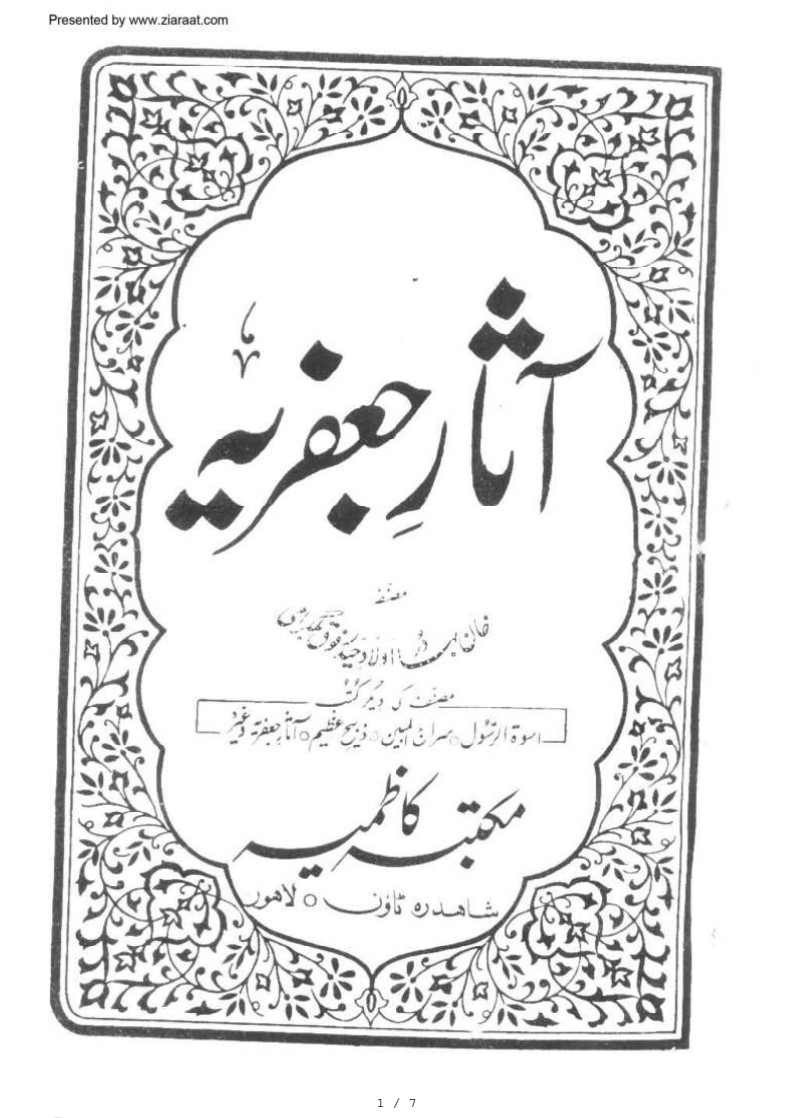 Presented by www.ziaraat.com
آثارِ جعفریہ
مصنف
خان بہادر اولاد حیدر فوق بلگرامی
مصنف کی دیگر کتب
اسوۃ الرسول ○ سراج المبین ○ ذبح عظیم ○ آثار جعفریہ وغیرہ
مکتبہ کاظمیہ
شاھدرہ ٹاؤن ○ لاھور
1 / 7